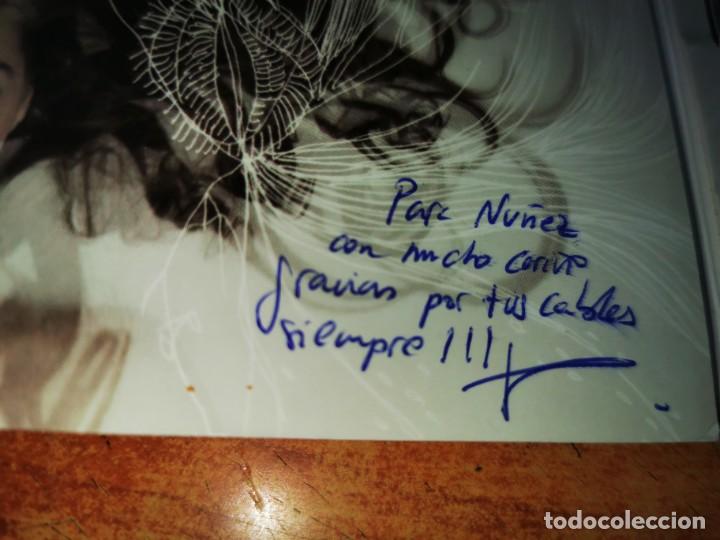 Para Nuñez
con mucho cariño
gracias por tus cables
siempre !!!
todocoleccion